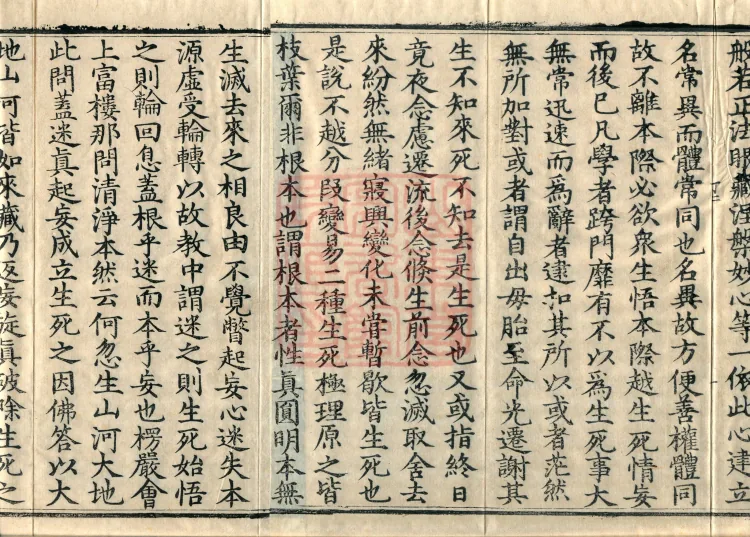 般若正法眼藏涅槃妙心等一依此心建立
名常異而體常同也名異故方便善權體同
故不離本際必欲衆生悟本際越生死情妄
而後已凡學者跨門靡有不以爲生死事大
無常迅速而爲辭者逮扣其所以或者茫然
無所加對或者謂自出母胎至命光遷謝其
生不知來死不知去是生死也又或指終日
竟夜念慮遷流後念倐生前念忽滅取舍去
來紛然無緒寢興變化未甞暫歇皆生死也
是說不越分段變易二種生死極理原之皆
枝葉爾非根本也謂根本者性真圓明本無
生滅去來之相良由不覺瞥起妄心迷失本
源虛受輪轉以故教中謂迷之則生死始悟
之則輪回息蓋根乎迷而本乎妄也楞嚴會
上富樓那問清淨本然云何忽生山河大地
此問蓋迷真起妄成立生死之因佛答以大
地山河皆如來藏乃返妄旋真破除生死之